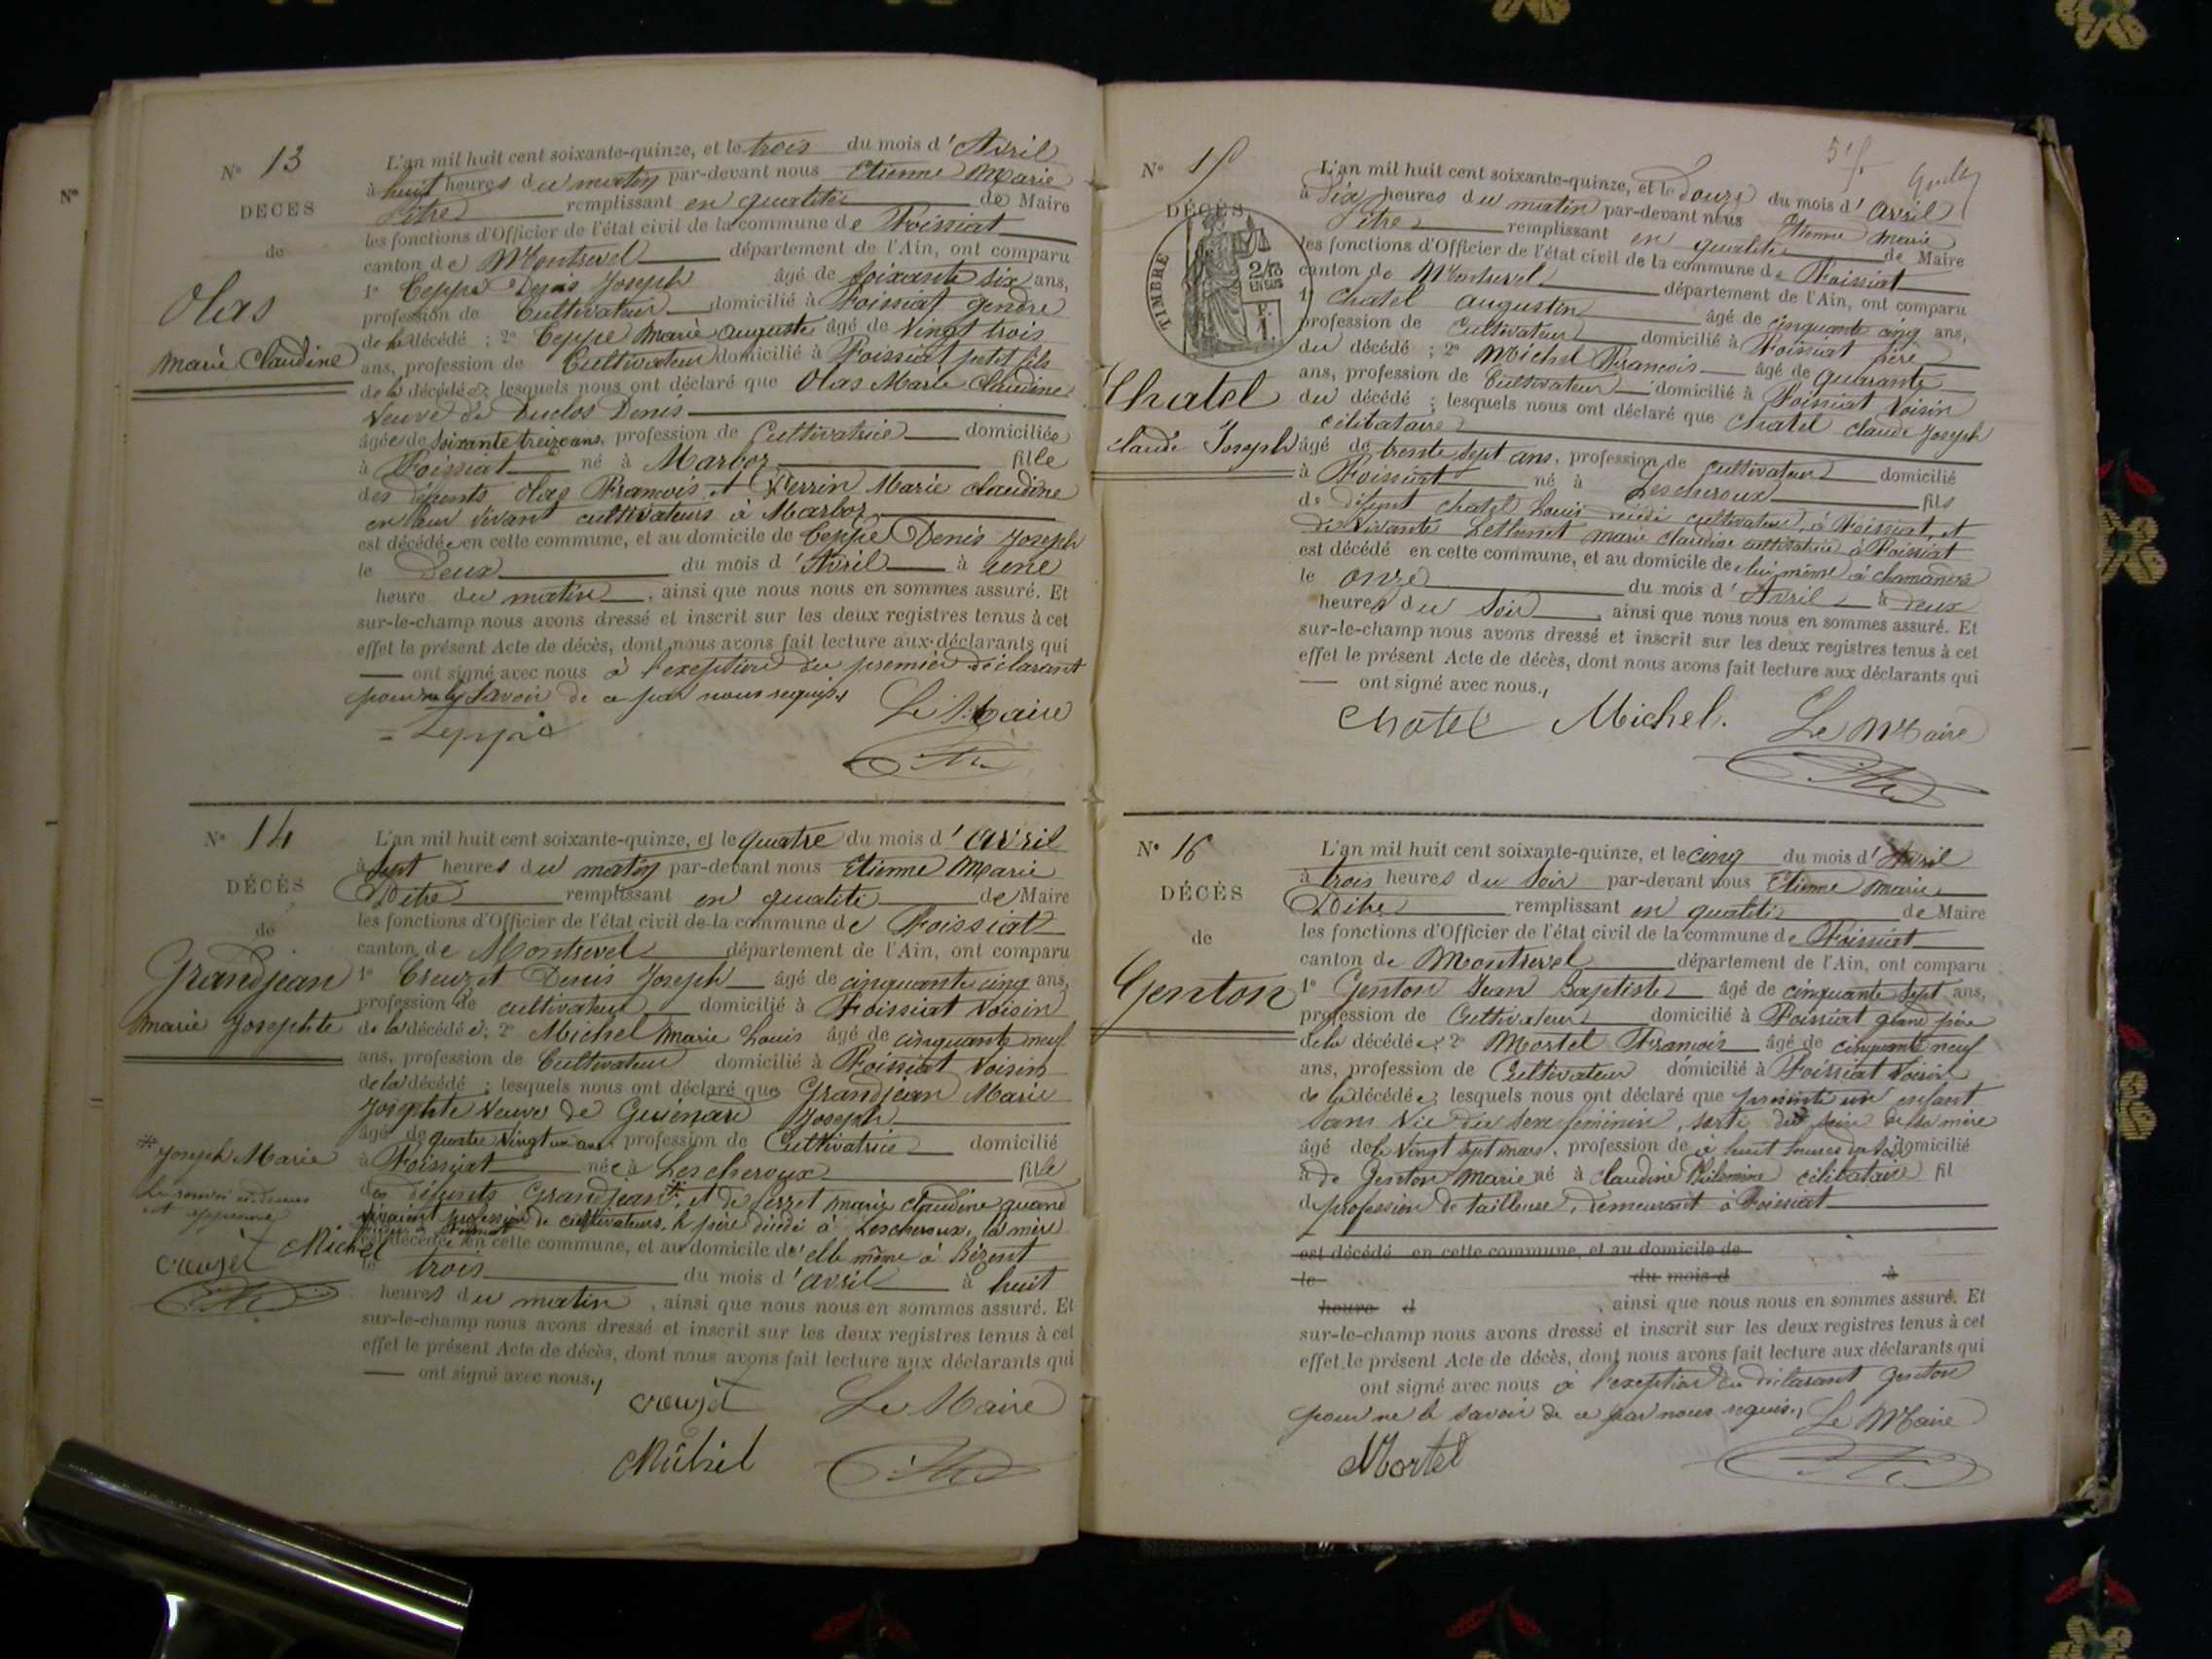 Nº
Nº 13
DÉCÈS
de
Olas
Marie Claudine
L'an mil huit cent soixante-quinze, et le trois du mois d'Avril
à huit heures du matin par-devant nous Etienne Marie
Pitre remplissant en qualité de Maire
les fonctions d'Officier de l'état civil de la commune de Foissiat
canton de Montrevel département de l'Ain, ont comparu
1º Ceppe Denis Joseph âgé de soixante six ans,
profession de Cultivateur domicilié à Foissiat gendre
de la décédé ; 2º Ceppe Marie Auguste âgé de Vingt trois
ans, profession de Cultivateur domicilié à Foissiat petit fils
de la décédée lesquels nous ont déclaré que Olas Marie Claudine
Veuve de Duclos Denis
âgée de soixante treize ans, profession de Cultivatrice domiciliée
à Foissiat né à Marboz fille
des défunts Olas François et Perrin Marie Claudine
en leur vivant cultivateurs à Marboz
est décédée en cette commune, et au domicile de Ceppe Denis Joseph
le Deux du mois d'Avril à une
heure du matin, ainsi que nous nous en sommes assuré. Et
sur-le-champ nous avons dressé et inscrit sur les deux registres tenus à cet
effet le présent Acte de décès, dont nous avons fait lecture aux déclarants qui
ont signé avec nous à l'exeption du premier déclarant
pour ne le savoir de ce par nous requis.
Le Maire
Ceppe
Nº 14
DÉCÈS
de
Grandjean
Marie Josephte
L'an mil huit cent soixante-quinze, et le quatre du mois d'avril
à sept heures du matin par-devant nous Etienne Marie
Pitre remplissant en qualité de Maire
les fonctions d'Officier de l'état civil de la commune de Foissiat
canton de Montrevel département de l'Ain, ont comparu
1º Creuzet Denis Joseph âgé de cinquante cinq ans,
profession de cultivateur domicilié à Foissiat Voisin
de la décédée; 2º Michel Marie Louis âgé de cinquante neuf
ans, profession de Cultivateur domicilié à Foissiat Voisin
de la décédé ; lesquels nous ont déclaré que Grandjean Marie
Josephte Veuve de Guienard Joseph
âgé de quatre Vingt un ans profession de Cultivatrice domicilié
à Foissiat née à Lescheroux fille
des défunts Grandjean * et de Perret Marie Claudine quand
vivaient profession de cultivateurs, le père décédé à Lescheroux, la mère
est décédée en cette commune, et au domicile de elle même à Bézent
le trois du mois d'avril à huit
heures du matin, ainsi que nous nous en sommes assuré. Et
sur-le-champ nous avons dressé et inscrit sur les deux registres tenus à cet
effet le présent Acte de décès, dont nous avons fait lecture aux déclarants qui
ont signé avec nous.
* Joseph Marie
Le renvoi ci-dessus
est approuvé
Creuzet Michel
Creuzet Le Maire
Michel
Nº 15
DÉCÈS
TIMBRE
2/10
EN SUS
Chatel
Claude Joseph
L'an mil huit cent soixante-quinze, et le Douze du mois d'avril
à Dix heures du matin par-devant nous Etienne Marie
Pitre remplissant en qualité de Maire
les fonctions d'Officier de l'état civil de la commune de Foissiat
canton de Montrevel département de l'Ain, ont comparu
1º Chatel Augustin âgé de cinquante cinq ans,
profession de Cultivateur domicilié à Foissiat frère
du décédé ; 2º Michel François âgé de quarante
ans, profession de Cultivateur domicilié à Foissiat Voisin
du décédé ; lesquels nous ont déclaré que Chatel Claude Joseph
célibataire
âgé de trente sept ans, profession de cultivateur domicilié
à Foissiat né à Lescheroux fils
de défunt Chatel Louis décédé cultivateur, à Foissiat, et
de Vivante Marie Claudine cultivatrice à Foissiat
est décédé en cette commune, et au domicile de lui même à
le onze du mois d'Avril à deux
heures du soir, ainsi que nous nous en sommes assuré. Et
sur-le-champ nous avons dressé et inscrit sur les deux registres tenus à cet
effet le présent Acte de décès, dont nous avons fait lecture aux déclarants qui
ont signé avec nous.
Chatel Michel. Le Maire
Nº 16
DÉCÈS
de
Genton
L'an mil huit cent soixante-quinze, et le cinq du mois d'Avril
à trois heures du soir par-devant nous Etienne Marie
Pitre remplissant en qualité de Maire
les fonctions d'Officier de l'état civil de la commune de Foissiat
canton de Montrevel département de l'Ain, ont comparu
1º Genton Jean Baptiste âgé de cinquante sept ans,
profession de Cultivateur domicilié à Foissiat grand père
de la décédée; 2º Mortel François âgé de cinquante neuf
ans, profession de Cultivateur domicilié à Foissiat Voisin
de la décédée; lesquels nous ont déclaré que présente un enfant
sans Vie du sexe féminin, sorti du sein de sa mère
âgé de le Vingt sept mars, profession de à huit heures du soir domicilié
à de Genton Marie né à Claudine Philomine célibataire fil
d profession de tailleuse, demeurant à Foissiat
est décédé en cette commune, et au domicile de
le du mois d à
heure d , ainsi que nous nous en sommes assuré. Et
sur-le-champ nous avons dressé et inscrit sur les deux registres tenus à cet
effet le présent Acte de décès, dont nous avons fait lecture aux déclarants qui
ont signé avec nous à l'exeption du déclarant Genton
pour ne le savoir de ce par nous requis., Le Maire
Mortel